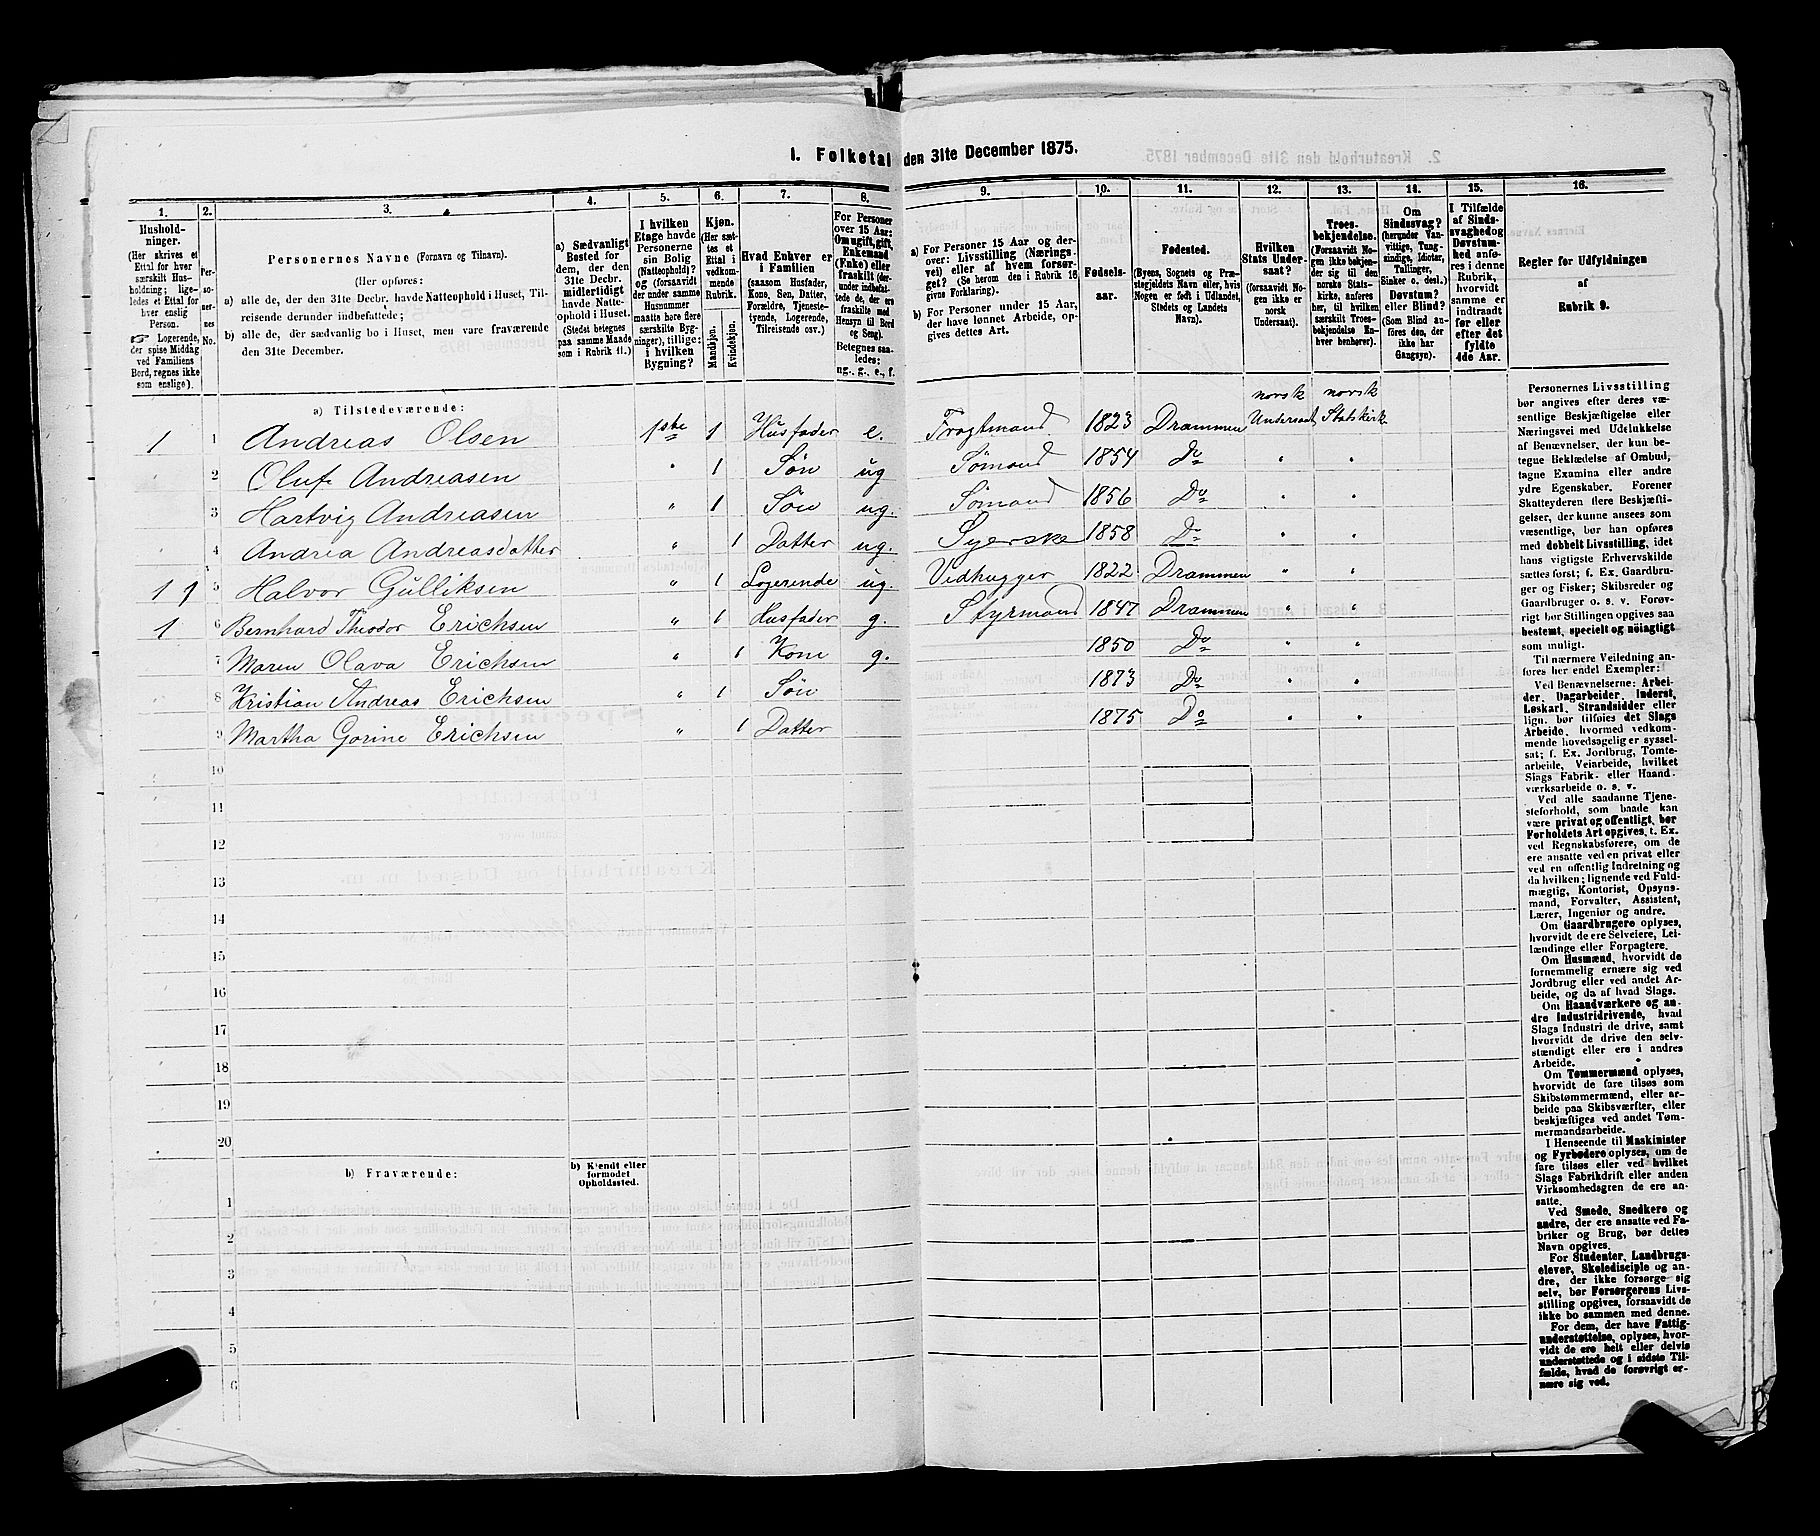 1. Folketal den 31te December 1875.
1. 2. 3. 4. 5. 6. 7. 8. 9. 10. 11. 12. 13. 14. 15. 16.
Hushold-
ninger.
(Her skrives et
Ettal for hver
særskilt Hus-
holdning; lige-
ledes et Ettal for
hver enslig
Person.
☞ Logerende,
der spise Middag
ved Familiens
Bord, regnes ikke
som enslige).
Per-
so-
ner-
nes
No.
Personernes Navne (Fornavn og Tilnavn).
(Her opføres:
a) alle de, der den 31te Decbr. havde Natteophold i Huset, Til-
reisende derunder indbefattede;
b) alle de, der sædvanlig bo i Huset, men vare fraværende
den 31te December.
a) Sædvanligt
Bosted for
dem, der den
31te Decbr.
midlertidigt
havde Natte-
ophold i Huset.
(Stedet betegnes
paa samme Maade
som i Rubrik 11.)
I hvilken
Etage havde
Personerne
sin Bolig
(Natteophold)?
og (forsaavidt
der under samme
Husnummer
maatte høre flere
særskilte Byg-
ninger), tillige:
i hvilken
Bygning?
Kjøn.
(Her sæt-
tes et
Ettal i
vedkom-
mende
Rubrik.
Mandkjøn.
Kvindekjøn.
Hvad Enhver er
i Familien
(saasom Husfader,
Kone, Søn, Datter,
Forældre, Tjeneste-
tyende, Logerende,
Tilreisende osv.)
For Personer
over 15 Aar:
Om ugift, gift,
Enkemand
(Enke) eller
fraskilt (der-
under indbefat-
tede de, der ere
fraskilte med
Hensyn til Bord
og Seng).
Betegnes saa-
ledes:
ug., g., e., f.
a) For Personer 15 Aar og der-
over: Livsstilling (Nærings-
vei) eller af hvem forsør-
get? (Se herom den i Rubrik 16
givne Forklaring).
b) For Personer under 15 Aar,
der have lønnet Arbeide, op-
gives dettes Art.
Fødsels-
aar.
Fødested.
(Byens, Sognets og Præ-
stegjeldets Navn, eller, hvis
Nogen er født i Udlandet,
Stedets og Landets
Navn).
Hvilken
Stats Under-
saat?
(forsaavidt No-
gen ikke er
norsk
Undersaat).
Troes-
bekjendelse.
(Forsaavidt No-
gen ikke bekjen-
der sig til den
norske Stats-
kirke, anføres
her, til hvilken
særskilt Troes-
bekjendelse En-
hver henhører).
Om
Sindssvag?
(herunder Van-
vittige, Tung-
sindige, Idioter,
Tullinger,
Sinker o. desl.)
Døvstum?
eller Blind?
(Som Blind an-
føres den, der
ikke har
Gangsyn).
I Tilfælde
af Sinds-
svaghed og
Døvstum-
hed anfø-
res i denne
Rubrik,
hvorvidt
samme er
indtraadt
før eller
efter det
fyldte
4de Aar.
Regler for Udfyldningen
af
Rubrik 9.
a) Tilstedeværende:
norsk norsk
1 1 Andreas Olsen 1ste 1 Husfader e. Fragtmand 1823 Drammen Undersaat Statskirk
2 Oluf Andreasen " 1 Søn ug Sømand 1854 Do " "
3 Hartvig Andreasen " 1 Søn ug. Sømand 1856 Do " "
4 Andrea Andreasdatter " 1 Datter ug. Syerske 1858 Do " "
1 1 5 Halvor Gulliksen " 1 Logerende ug. Vedhugger 1822 Drammen " "
1 6 Bernhard Theodor Erichsen " 1 Husfader g. Styrmand 1847 Drammen " "
7 Maren Olava Erichsen " 1 Kone g. 1850 Do " "
8 Kristian Andreas Erichsen " 1 Søn 1873 Do " "
9 Martha Gorine Erichsen " 1 Datter 1875 Do " "
10
11
12
13
14
15
16
17
18
19
20
b) Fraværende:
b) Kjendt eller
formodet
Opholdssted.
1
2
3
4
5
6
Personernes Livsstilling
bør angives efter deres væ-
sentlige Beskjæftigelse eller
Næringsvei med Udelukkelse
af Benævnelser, der kun be-
tegne Beklædelse af Ombud,
tagne Examina eller andre
ydre Egenskaber. Forener
Skatteyderen flere Beskjæfti-
gelser, der kunne ansees som
væsentlige, bør han opføres
med dobbelt Livsstilling, idet
hans vigtigste Erhvervskilde
sættes først; f. Ex. Gaardbru-
ger og Fisker; Skibsreder og
Gaardbruger o. s. v. Forøv-
rigt bør Stillingen opgives saa
bestemt, specielt og nøiagtigt
som muligt.
Til nærmere Veiledning an-
føres her endel Exempler:
Ved Benævnelserne: Arbei-
der, Dagarbeider, Inderst,
Løskarl, Strandsidder eller
lign. bør tilføies det Slags
Arbeide, hvormed vedkom-
mende hovedsagelig er syssel-
sat; f. Ex. Jordbrug, Tomte-
arbeide, Veiarbeide, hvilket
Slags Fabrik- eller Haand-
værksarbeide o. s. v.
Ved alle saadanne Tjene-
steforhold, som baade kan
være privat og offentligt, bør
Forholdets Art opgives, t. Ex.
ved Regnskabsførere, om de
ere ansatte ved en privat eller
ved en offentlig Indretning og
da hvilken; lignende ved Fuld-
mægtig, Kontorist, Opsyns-
mand, Forvalter, Assistent,
Lærer, Ingeniør og andre.
Om Gaardbrugere oplyses,
hvorvidt de ere Selveiere, Lei-
lændinge eller Forpagtere.
Om Husmænd, hvorvidt de
fornemmelig ernære sig ved
Jordbrug eller ved andet Ar-
beide, og da af hvad Slags.
Om Haandværkere og an-
dre Industridrivende, hvad
Slags Industri de drive, samt
hvorvidt de drive den selv-
stændigt eller ere i andres
Arbeide.
Om Tømmermænd oplyses,
hvorvidt de fare tilsøs som
Skibstømmermænd, eller ar-
beide paa Skibsværfter, eller
beskjæftiges ved andet Tøm-
mermandsarbeide.
I Henseende til Maskinister
og Fyrbødere oplyses, om de
fare tilsøs eller ved hvilket
Slags Fabrikdrift eller anden
Virksomhedsgren de ere an-
satte.
Ved Smede, Snedkere og
andre, der ere ansatte ved Fa-
briker og Brug, bør dettes
Navn opgives.
For Studenter, Landbrugs-
elever, Skoledisciple og an-
dre, der ikke forsørge sig
selv, bør Forsørgerens Livs-
stilling opgives, forsaavidt de
ikke bo sammen med denne.
For dem, der have Fattig-
understøttelse, oplyses, hvor-
vidt de ere helt eller delvis
understøttede og i sidste Til-
fælde, hvad de forøvrigt er-
nære sig ved.